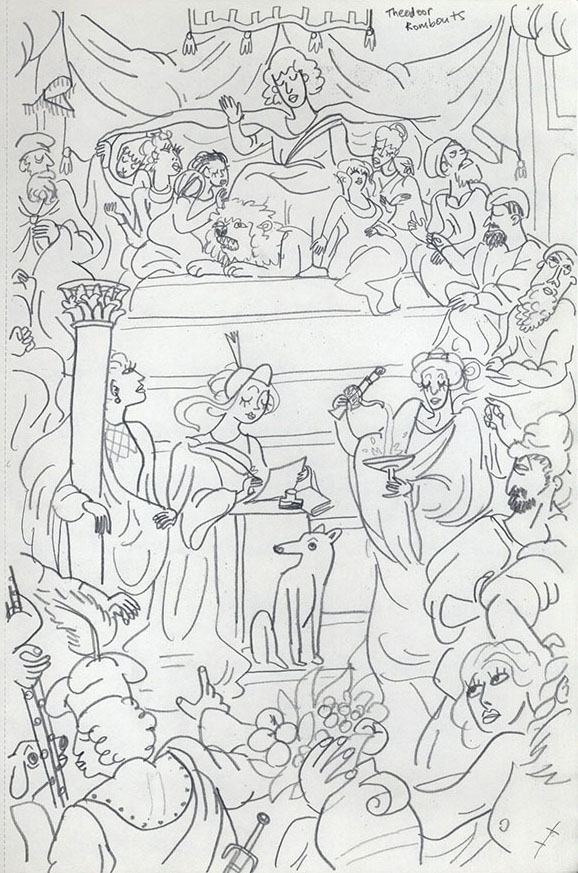 Theodoor
Rombouts